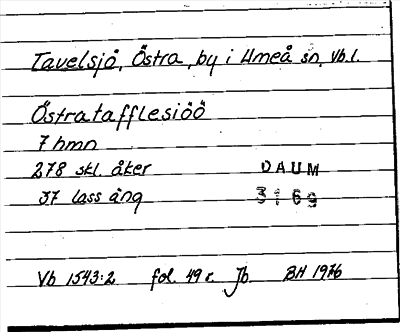 Tavelsjö, Östra, by i Umeå sn, Vb.l.
Östratafflesiöö
7 hmn
278 skl. åker DAUM
37 lass äng 3169
Vb 1543:2 fol. 49 r. Jb. BH 1976